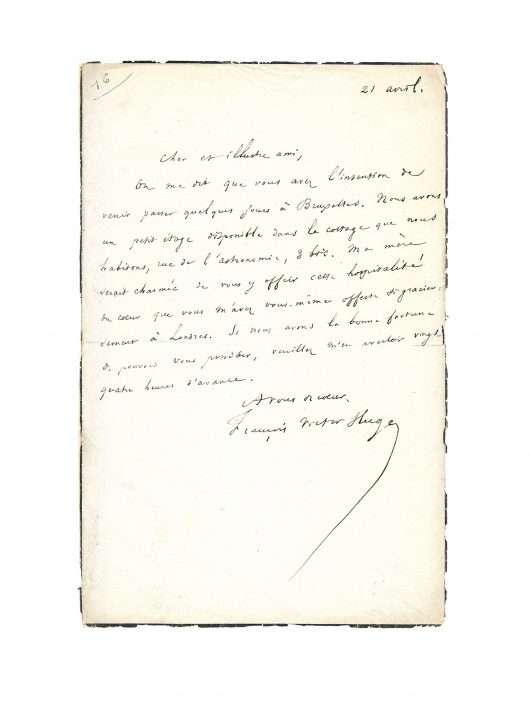 16
21 avril.
Cher et illustre ami,
On me dit que vous avez l'intention de
venir passer quelques jours à Bruxelles. Nous avons
un petit étage disponible dans le cottage que nous
habitons, rue de l'astronomie, 3 bis. Ma mère
serait charmée de vous y offrir cette hospitalité
du cœur que vous m'avez vous-même offerte si gracieu-
sement à Londres. Si nous avons la bonne fortune
de pouvoir vous posséder, veuillez m'en avertir vingt
quatre heures d'avance.
A vous de cœur.
François Victor Hugo